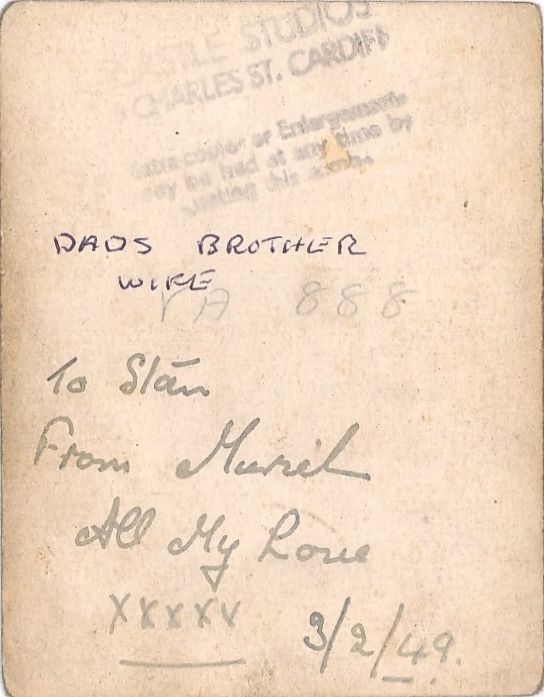 CASTLE STUDIOS
CHARLES ST. CARDIFF
Extra copies or Enlargements
may be had at any time by
quoting this
DADS BROTHER
WIFE
VA 888
To Stan
From Muriel
All My Love
XXXXX
3/2/49.